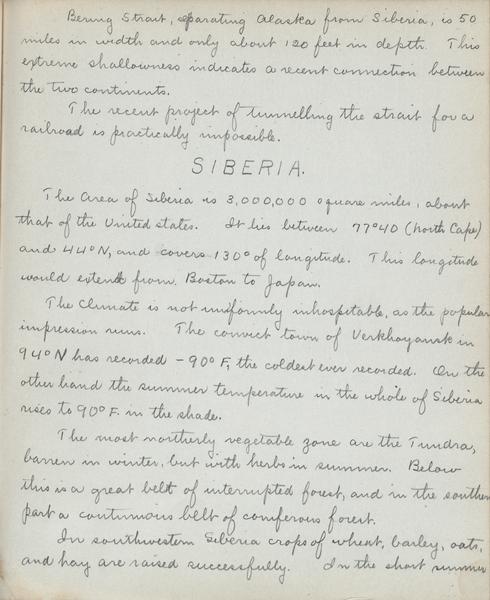 Bering Strait, separating Alaska from Siberia, is 50
miles in width and only about 120 feet in depth. This
extreme shallowness indicates a recent connection between
the two continents.
The recent project of tunnelling the strait for a
railroad is practically impossible.
SIBERIA.
The area of Siberia is 3,000,000 square miles, about
that of the United States. It lies between 77°40 (North Cape)
and 44°N, and covers 130° of longitude. This longitude
would extend from Boston to Japan.
The climate is not uniformly inhospitable, as the popular
impression runs. The convict town of Verkhoyansk in
94°N has recorded -90°F, the coldest ever recorded. On the
other hand the summer temperature in the whole of Siberia
rises to 90°F. in the shade.
The most northerly vegetable zone are the Tundra,
barren in winter, but with herbs in summer. Below
this is a great belt of interrupted forest, and in the southern
part a continuous belt of coniferous forest.
In southwestern Siberia crops of wheat, barley, oats,
and hay are raised successfully. In the short summer